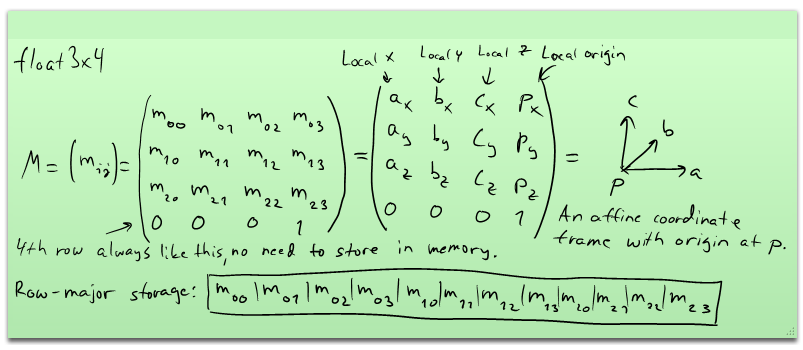 float3x4
Local x Local y Local z Local origin
M = (m_ij) = ( m_00 m_01 m_02 m_03 ) = ( a_x b_x c_x p_x ) =
m_10 m_11 m_12 m_13 a_y b_y c_y p_y
m_20 m_21 m_22 m_23 a_z b_z c_z p_z
0 0 0 1 0 0 0 1
c
b
a
P
An affine coordinate
frame with origin at p.
4th row always like this, no need to store in memory.
Row-major storage: m_00 | m_01 | m_02 | m_03 | m_10 | m_11 | m_12 | m_13 | m_20 | m_21 | m_22 | m_23